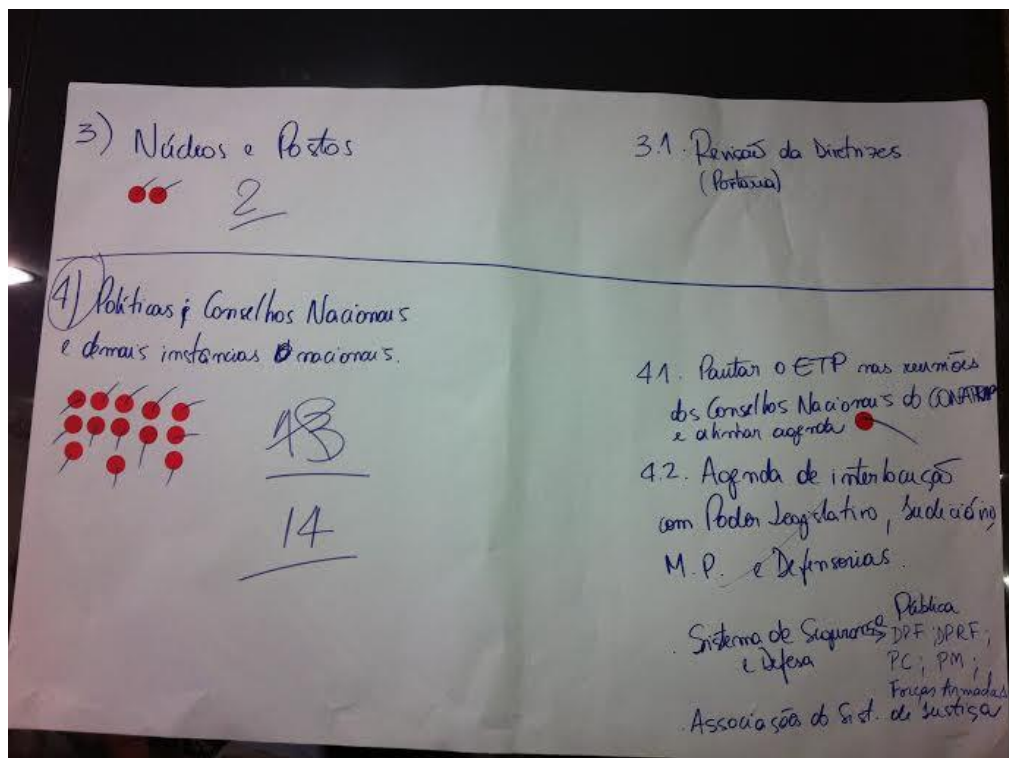 3) Núcleos e Postos
2
3.1. Revisão da Diretrizes
(Portaria)
4) Políticas; Conselhos Nacionais
e demais instâncias nacionais.
13
14
4.1. Pautar o ETP nas reuniões
dos Conselhos Nacionais do CONATRAP
e alinhar agenda
4.2. Agenda de interlocução
com Poder Legislativo, Judiciário,
M.P. e Defensorias.
. Sistema de Segurança Pública
e Defesa
DPF; DPRF;
PC; PM;
Forças Armadas
. Associação do Sist. de Justiça